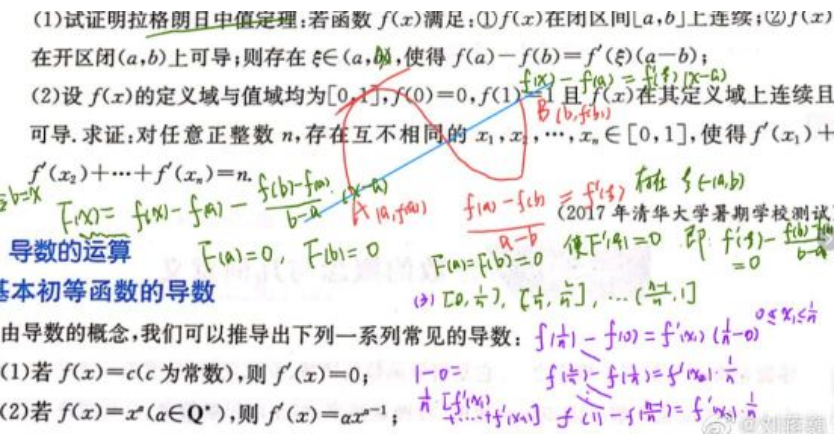 (1)试证明拉格朗日中值定理:若函数 f(x)满足:①f(x)在闭区间[a,b]上连续;②f(x)
在开区间(a,b)上可导;则存在 ξ∈(a,b),使得 f(a)-f(b)=f'(ξ)(a-b);
f(x)-f(a)=f'(ξ)(x-a)
(2)设 f(x)的定义域与值域均为[0,1],f(0)=0,f(1)=1且 f(x)在其定义域上连续且
B(b,f(b))
可导.求证:对任意正整数 n,存在互不相同的 x₁,x₂,⋯,xₙ∈[0,1],使得 f'(x₁)+
f'(x₂)+⋯+f'(xₙ)=n.
b=x
F(x)=f(x)-f(a)-\frac{f(b)-f(a)}{b-a}(x-a)
A(a,f(a))
\frac{f(a)-f(b)}{a-b}=f'(ξ)
存在 ξ∈(a,b)
(2017年清华大学暑期学校测试
F(a)=0, F(b)=0
F(a)=F(b)=0 使F'(ξ)=0 即 f'(ξ)-\frac{f(b)-f(a)}{b-a}=0
导数的运算
基本初等函数的导数
[0,\frac{1}{n}], [\frac{1}{n},\frac{2}{n}],⋯[\frac{n-1}{n},1]
由导数的概念,我们可以推导出下列一系列常见的导数:
f(\frac{1}{n})-f(0)=f'(x₁)(\frac{1}{n}-0) 0≤x₁≤\frac{1}{n}
(1)若 f(x)=c(c为常数),则 f'(x)=0;
1-0=
f(\frac{2}{n})-f(\frac{1}{n})=f'(x₂)\frac{1}{n}
(2)若 f(x)=xᵅ(α∈Q*),则 f'(x)=αxᵅ⁻¹;
\frac{1}{n}[f'(x₁)+⋯+f'(xₙ)]
f(1)-f(\frac{n-1}{n})=f'(xₙ)\frac{1}{n}